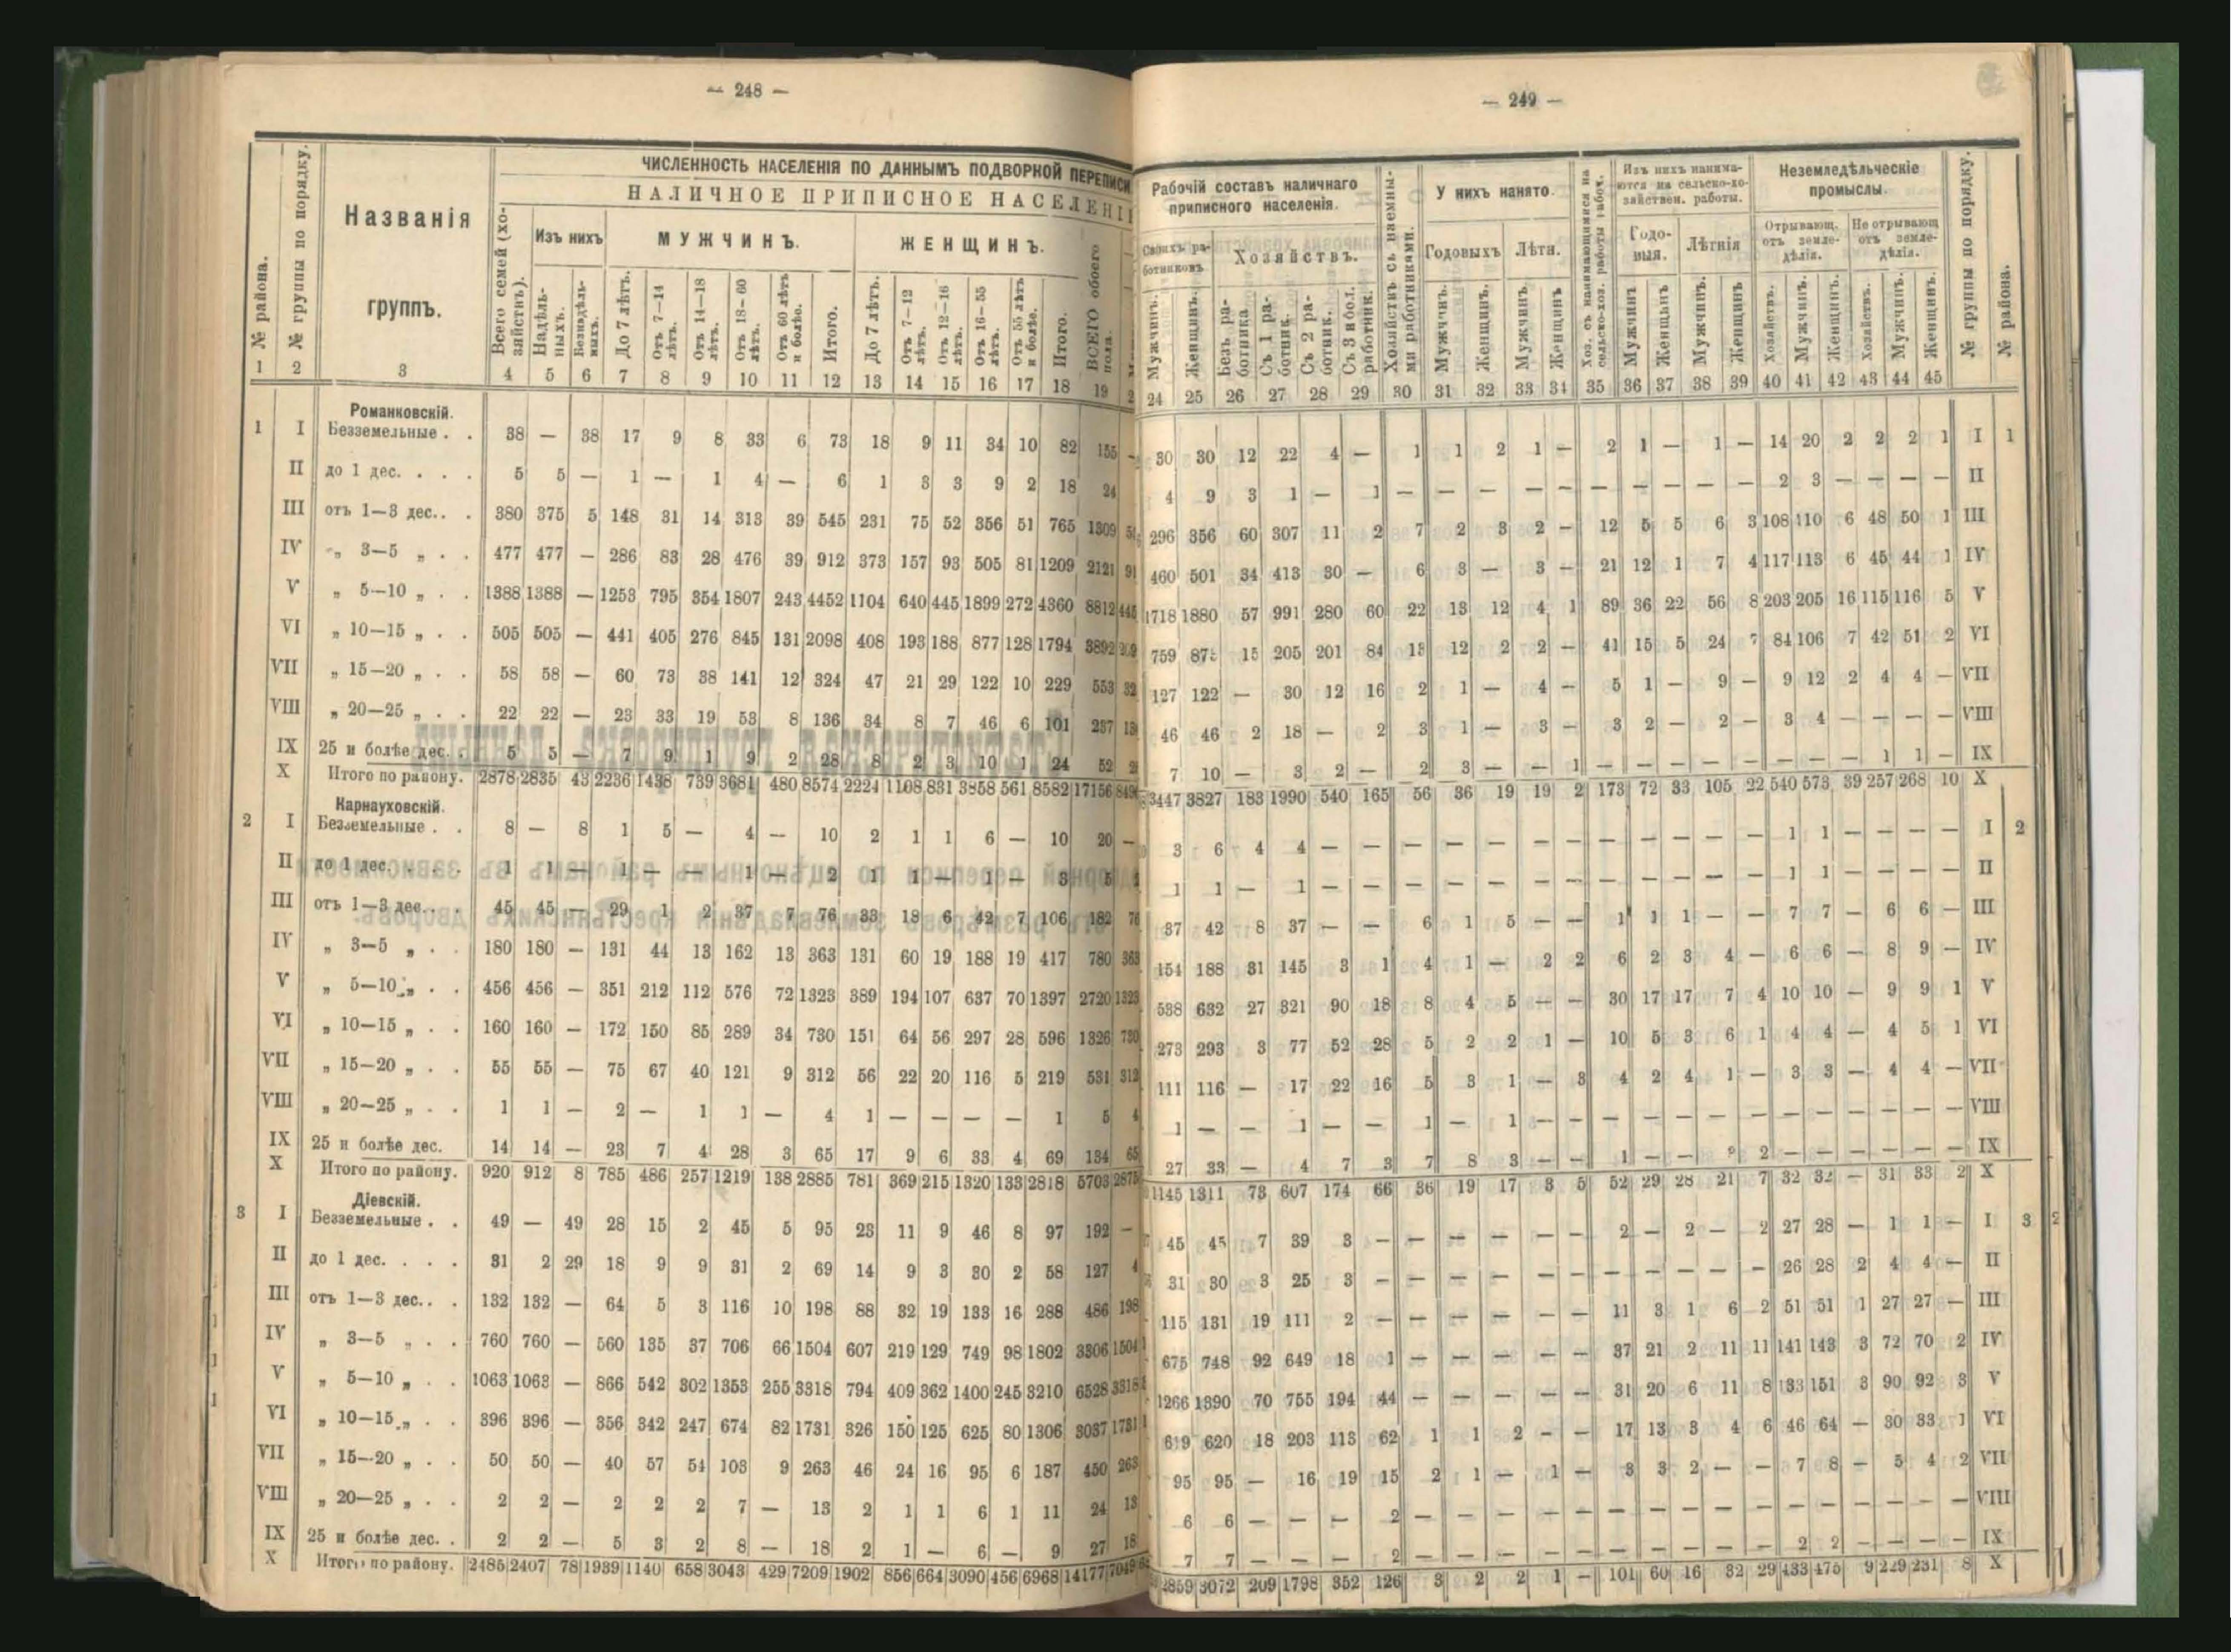 — 248 —
ЧИСЛЕННОСТЬ НАСЕЛЕНІЯ ПО ДАННЫМЪ ПОДВОРНОЙ ПЕРЕПИСИ
НАЛИЧНОЕ ПРИПИСНОЕ НАСЕЛЕНІ
№ района.
№ группы по порядку.
Названія группъ.
Всего семей (хозяйствъ).
Изъ нихъ
Надѣльныхъ.
Безнадѣльныхъ.
МУЖЧИНЪ.
До 7 лѣтъ.
Отъ 7—14 лѣтъ.
Отъ 14—18 лѣтъ.
Отъ 18—60 лѣтъ.
Отъ 60 лѣтъ и болѣе.
Итого.
ЖЕНЩИНЪ.
До 7 лѣтъ.
Отъ 7—12 лѣтъ.
Отъ 12—16 лѣтъ.
Отъ 16—55 лѣтъ.
Отъ 55 лѣтъ и болѣе.
Итого.
ВСЕГО обоего пола.
1 2 3 4 5 6 7 8 9 10 11 12 13 14 15 16 17 18 19 2
Романковскій.
1 I Безземельные . . 38 — 38 17 9 8 33 6 73 18 9 11 34 10 82 155 —
II до 1 дес. . . . 5 5 — 1 — 1 4 — 6 1 3 3 9 2 18 24
III отъ 1—3 дес.. . 380 375 5 148 31 14 313 39 545 231 75 52 356 51 765 1309
IV „ 3—5 „ . . 477 477 — 286 83 28 476 39 912 373 157 93 505 81 1209 2121 91
V „ 5—10 „ . . 1388 1388 — 1253 795 354 1807 243 4452 1104 640 445 1899 272 4360 8812 445
VI „ 10—15 „ . . 505 505 — 441 405 276 845 131 2098 408 193 188 877 128 1794 3892 209
VII „ 15—20 „ . . 58 58 — 60 73 38 141 12 324 47 21 29 122 10 229 553 32
VIII „ 20—25 „ . . 22 22 — 23 33 19 53 8 136 34 8 7 46 6 101 237 13
IX 25 и болѣе дес. . 5 5 — 7 9 1 9 2 28 8 2 3 10 1 24 52 2
X Итого по району. 2878 2835 43 2236 1438 739 3681 480 8574 2224 1108 831 3858 561 8582 17156 849
Карнауховскій.
2 I Безземельные . . 8 — 8 1 5 — 4 — 10 2 1 1 6 — 10 20 —
II до 1 дес. . . . 1 1 — 1 — — 1 — 2 1 1 — 1 — 3 5
III отъ 1—3 дес.. . 45 45 — 29 1 2 37 7 76 33 18 6 42 7 106 182 76
IV „ 3—5 „ . . 180 180 — 131 44 13 162 13 363 131 60 19 188 19 417 780 363
V „ 5—10 „ . . 456 456 — 351 212 112 576 72 1323 389 194 107 637 70 1397 2720 1323
VI „ 10—15 „ . . 160 160 — 172 150 85 289 34 730 151 64 56 297 28 596 1326 730
VII „ 15—20 „ . . 55 55 — 75 67 40 121 9 312 56 22 20 116 5 219 531 312
VIII „ 20—25 „ . . 1 1 — 2 — 1 1 — 4 1 — — — — 1 5 4
IX 25 и болѣе дес. 14 14 — 23 7 4 28 3 65 17 9 6 33 4 69 134 65
X Итого по району. 920 912 8 785 486 257 1219 138 2885 781 369 215 1320 133 2818 5703 2875
Діевскій.
3 I Безземельные . . 49 — 49 28 15 2 45 5 95 23 11 9 46 8 97 192 —
II до 1 дес. . . . 31 2 29 18 9 9 31 2 69 14 9 3 30 2 58 127 4
III отъ 1—3 дес.. . 132 132 — 64 5 3 116 10 198 88 32 19 133 16 288 486 198
IV „ 3—5 „ . . 760 760 — 560 135 37 706 66 1504 607 219 129 749 98 1802 3306 1504
V „ 5—10 „ . . 1063 1063 — 866 542 302 1353 255 3318 794 409 362 1400 245 3210 6528 3318
VI „ 10—15 „ . . 396 396 — 356 342 247 674 82 1731 326 150 125 625 80 1306 3037 1731
VII „ 15—20 „ . . 50 50 — 40 57 54 103 9 263 46 24 16 95 6 187 450 263
VIII „ 20—25 „ . . 2 2 — 2 2 2 7 — 13 2 1 1 6 1 11 24 13
IX 25 и болѣе дес. . 2 2 — 5 3 2 8 — 18 2 1 — 6 — 9 27 18
X Итого по району. 2485 2407 78 1939 1140 658 3043 429 7209 1902 856 664 3090 456 6968 14177 7049
— 249 —
Рабочій составъ наличнаго приписного населенія.
Своихъ работниковъ
Мужчинъ.
Женщинъ.
Хозяйствъ.
Безъ работника.
Съ 1 работник.
Съ 2 работник.
Съ 3 и бол. работник.
Хозяйствъ съ наемными работниками.
У нихъ нанято.
Годовыхъ
Мужчинъ.
Женщинъ.
Лѣтн.
Мужчинъ.
Женщинъ
Хоз. съ нанимающимися на сельско-хоз. работы рабоч.
Изъ нихъ нанимаются на сельско-хозяйствен. работы.
Годовыя.
Мужчинъ
Женщинъ
Лѣтнія
Мужчинъ.
Женщинъ
Неземледѣльческіе промыслы.
Отрывающ. отъ земледѣлія.
Хозяйствъ.
Мужчинъ.
Женщинъ.
Не отрывающ отъ земледѣлія.
Хозяйствъ.
Мужчинъ.
Женщинъ.
№ группы по порядку.
№ района.
24 25 26 27 28 29 30 31 32 33 34 35 36 37 38 39 40 41 42 43 44 45
30 30 12 22 4 — 1 1 2 1 — 2 1 — 1 — 14 20 2 2 2 1 I 1
4 9 3 1 — 1 — — — — — — — — — — 2 3 — — — — II
296 356 60 307 11 2 7 2 3 2 — 12 5 5 6 3 108 110 6 48 50 1 III
460 501 34 413 30 — 6 3 — 3 — 21 12 1 7 4 117 113 6 45 44 1 IV
1718 1880 57 991 280 60 22 13 12 4 1 89 36 22 56 8 203 205 16 115 116 5 V
759 15 205 201 84 13 12 2 2 — 41 15 5 24 7 84 106 7 42 51 2 VI
127 122 — 30 12 16 2 1 — 4 — 5 1 — 9 — 9 12 2 4 4 — VII
46 46 2 18 — 2 3 1 — 3 — 3 2 — 2 — 3 4 — — — — VIII
7 10 — 3 2 — 2 3 — — 1 — — — — — — — — 1 1 — IX
3447 3827 183 1990 540 165 56 36 19 19 2 173 72 33 105 22 540 573 39 257 268 10 X
3 6 4 4 — — — — — — — — — — — — 1 1 — — — — I 2
1 1 — 1 — — — — — — — — — — — — 1 1 — — — — II
37 42 8 37 — — 6 1 5 — — 1 1 1 — — 7 7 — 6 6 — III
154 188 31 145 3 1 4 1 — 2 2 6 2 3 4 — 6 6 — 8 9 — IV
538 632 27 321 90 18 8 4 5 — — 30 17 17 7 4 10 10 — 9 9 1 V
273 293 3 77 52 28 5 2 2 1 — 10 5 3 6 1 4 4 — 4 5 1 VI
111 116 — 17 22 16 5 3 1 — 3 4 2 4 1 — 3 3 — 4 4 — VII
1 — — 1 — — 1 — 1 — — — — — — — — — — — — — VIII
27 33 — 4 7 3 7 8 3 — — 1 — — 2 — — — — — — IX
1145 1311 73 607 174 66 36 19 17 3 5 52 29 28 21 7 32 32 — 31 33 2 X
45 45 7 39 3 — — — — — — 2 — 2 — 2 27 28 — 1 1 — I 3
31 30 3 25 3 — — — — — — — — — — — 26 28 2 4 4 — II
115 131 19 111 2 — — — — — — 11 3 1 6 2 51 51 1 27 27 — III
675 748 92 649 18 1 — — — — — 37 21 2 11 11 141 143 3 72 70 2 IV
1266 1390 70 755 194 44 — — — — — 31 20 6 11 8 133 151 3 90 92 3 V
619 620 18 203 113 62 1 1 2 — — 17 13 3 4 6 46 64 — 30 33 1 VI
95 95 — 16 19 15 2 1 — 1 — 3 3 2 — — 7 8 — 5 4 2 VII
6 6 — — — 2 — — — — — — — — — — — — — — — — VIII
7 7 — — — 2 — — — — — — — — — — 2 2 — — — — IX
2859 3072 209 1798 352 126 3 2 2 1 — 101 60 16 32 29 433 475 9 229 231 8 X